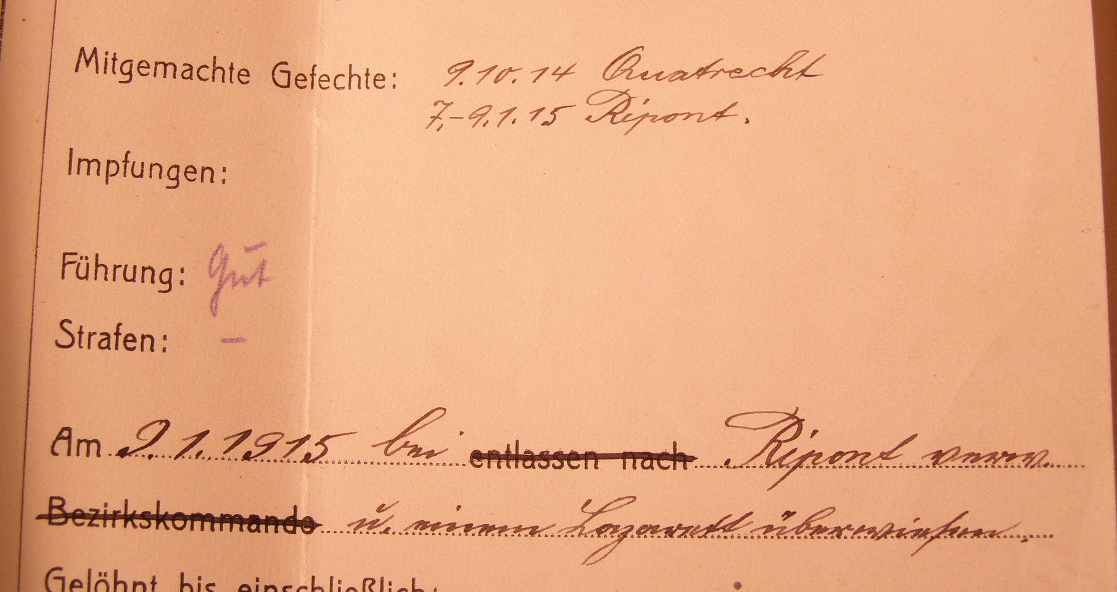 Mitgemachte Gefechte: 9.10.14 Quatrecht
7.-9.1.15 Ripont.
Impfungen:
Führung: Gut
Strafen: –
Am 9.1.1915 bei entlassen nach Ripont verw.
Bezirkskommando u. einem Lazarett überwiesen.
Gelöhnt bis einschließlich: